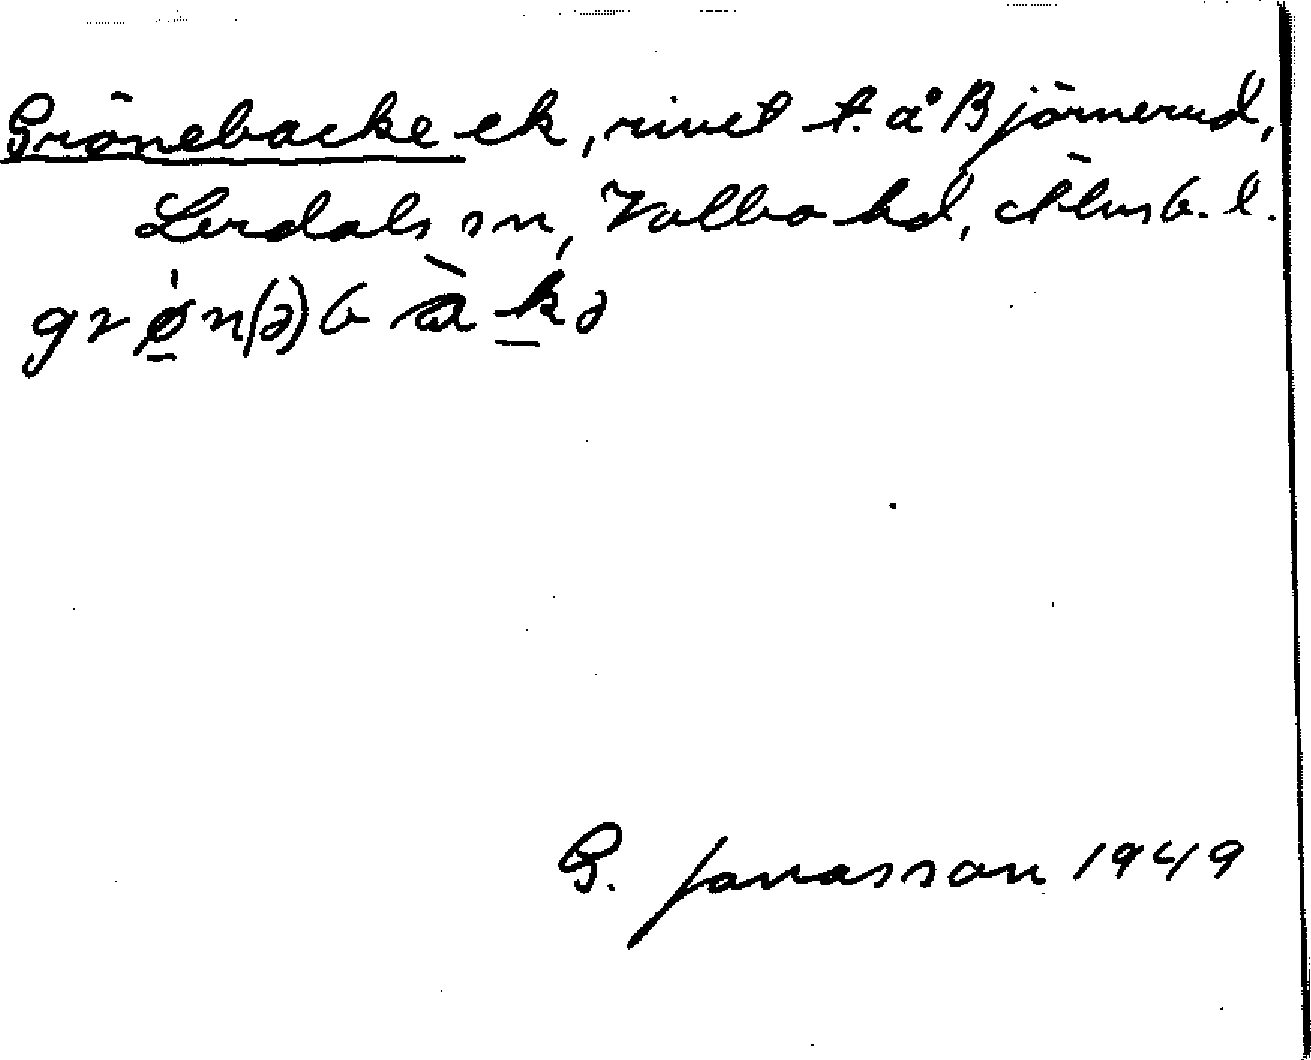 Grönebacke ek, rivet t. å Björnerud,
Lerdals sn, Valbo hd, Älvsb. l.
grø̱n(ə)bàḵə
G. Jonasson 1949